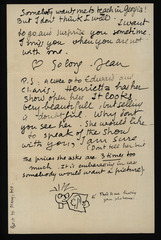 Somebody wants me to teach in Georgia!
But I don't think I will. I want
to go and surprise you sometime
I miss you when you are not
with me.
♡ So long - Jean
P.S. : a
to Edward and
Chris. Henrietta has her
show open now. It looks
very beautiful, but selling
is doubtful. Why don't
you see her. She would like
to speak of the show
with you, I am sure
Don't tell her but
the prices she asks are 3 times too
much. It is embarrassing (as
somebody would want a picture).